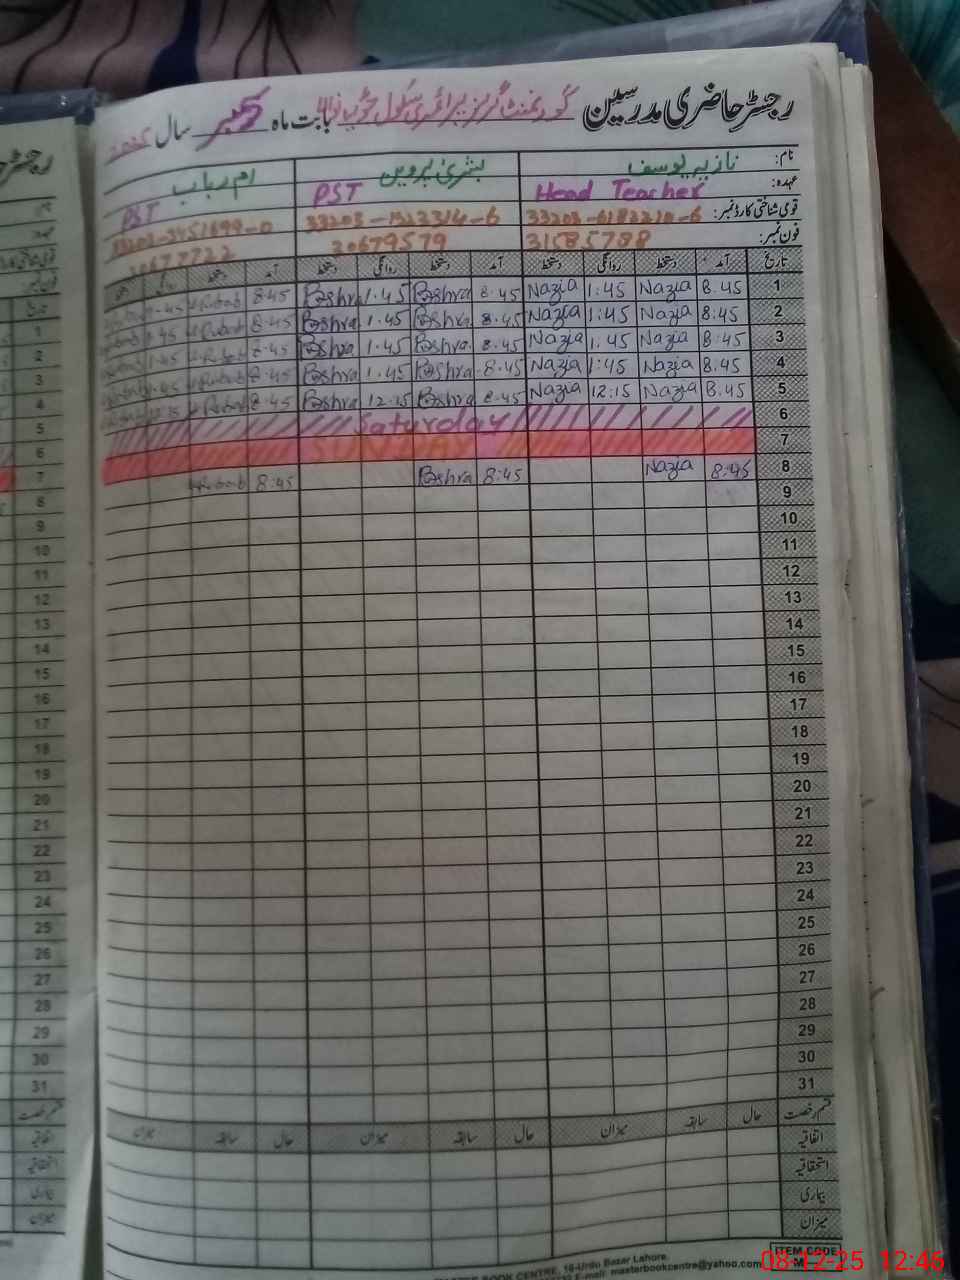 رجسٹر حاضری مدرسین گورنمنٹ گرلز پرائمری سکول بابت ماہ دسمبر سال
نام: نازیہ یوسف بشریٰ پروین ام رباب
عہدہ: Head Teacher PST PST
قومی شناختی کارڈ نمبر: 33203-6182210-6
فون نمبر: 31585788 30679579 30677722
تاریخ آمد دستخط روانگی دستخط آمد دستخط روانگی دستخط آمد دستخط روانگی
1 8.45 Nazia 1:45 Nazia 8.45 Bshra 1.45 Bshra 8.45 Rubab
2 8:45 Nazia 1:45 Nazia 8.45 Bshra 1.45 Bshra 8.45 Rubab
3 8:45 Nazia 1.45 Nazia 8.45 Bshra 1.45 Bshra 8.45 Rubab 1.45
4 8.45 Nazia 1:45 Nazia 8.45 Bshra 1.45 Bshra 8.45 Rubab 1.45
5 8.45 Nazia 12:15 Nazia 8.45 Bshra 12.15 Bshra 8.45 Rubab 12:15
6 Saturday
7 SUNDAY
8 8:45 Nazia 8:45 Bshra 8:45 Rubab
9
10
11
12
13
14
15
16
17
18
19
20
21
22
23
24
25
26
27
28
29
30
31
قسم رخصت حال سابقہ میزان حال سابقہ میزان حال سابقہ میزان
اتفاقیہ
استحقاقیہ
بیماری
میزان
BOOK CENTRE, 16-Urdu Bazar Lahore.
E-mail: masterbookcentre@yahoo.com
ITEM CODE
08-12-25 12:46